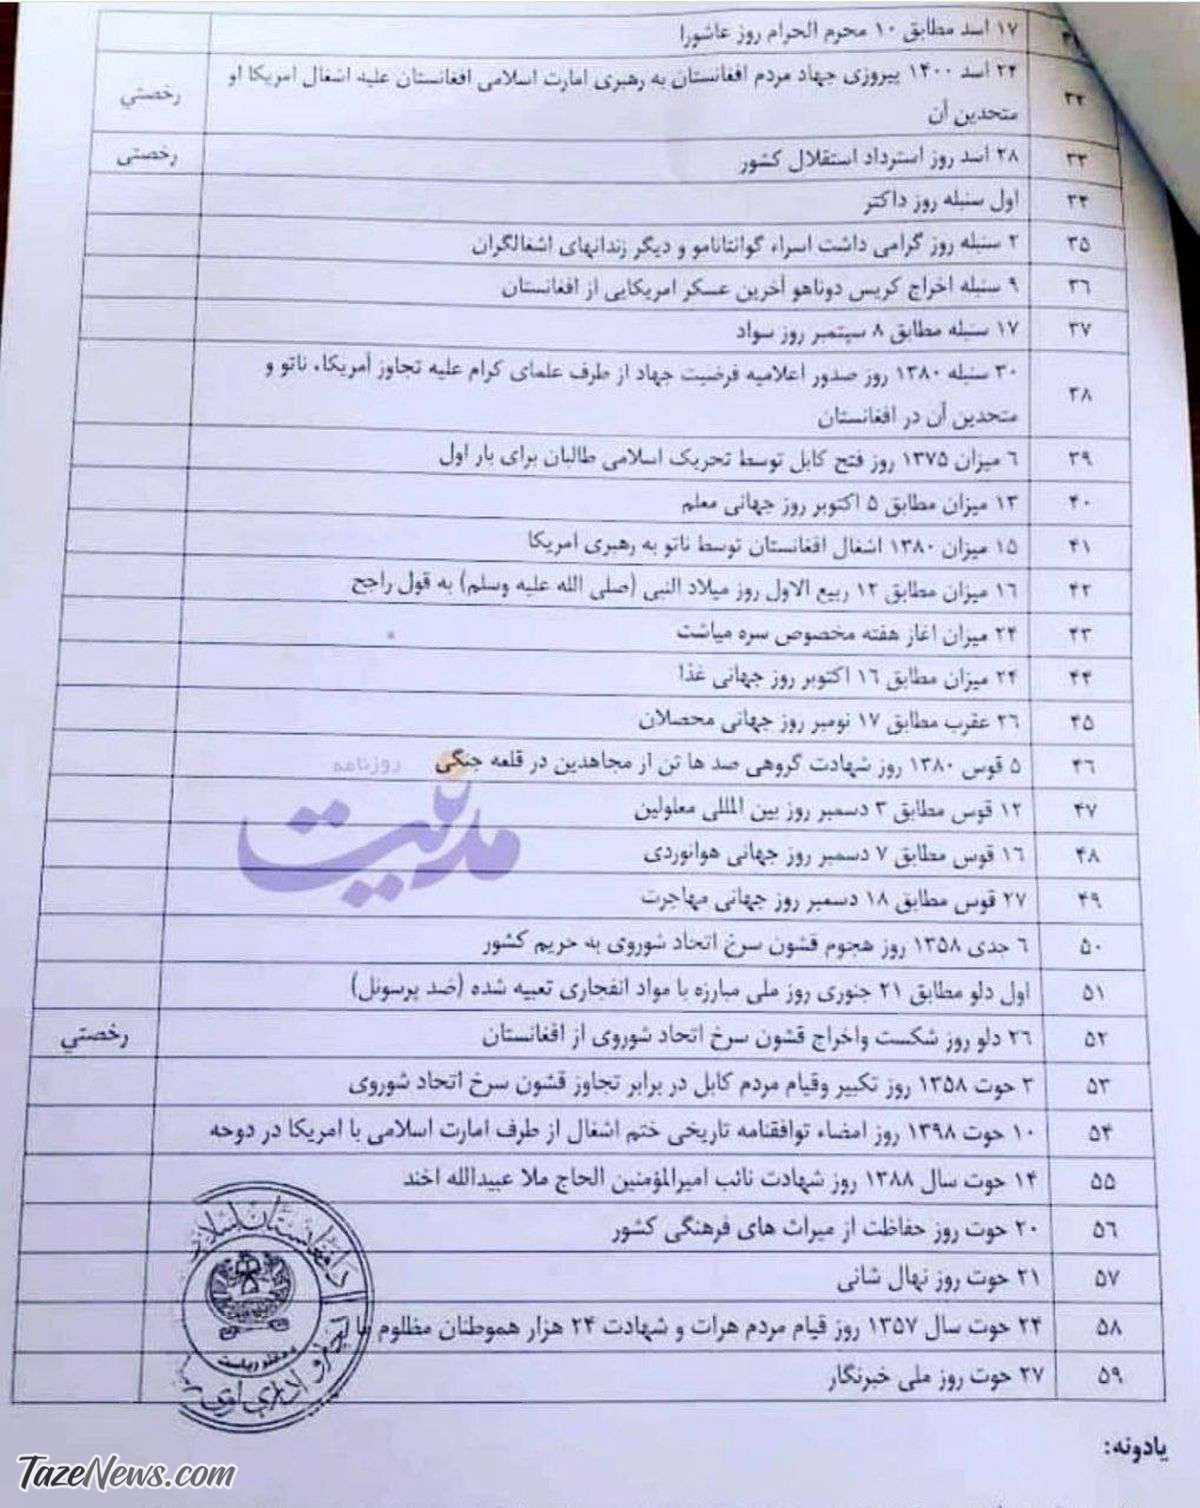 ۱۷ اسد مطابق ۱۰ محرم الحرام روز عاشورا
۳۲ ۲۴ اسد ۱۴۰۰ پیروزی جهاد مردم افغانستان به رهبری امارت اسلامی افغانستان علیه اشغال امریکا او رخصتي
متحدین آن
۳۳ ۲۸ اسد روز استرداد استقلال کشور رخصتی
۳۴ اول سنبله روز داکتر
۳۵ ۲ سنبله روز گرامی داشت اسراء گوانتانامو و دیگر زندانهای اشغالگران
۳۶ ۹ سنبله اخراج کریس دوناهو آخرین عسکر امریکایی از افغانستان
۳۷ ۱۷ سنبله مطابق ۸ سپتمبر روز سواد
۳۸ ۳۰ سنبله ۱۳۸۰ روز صدور اعلامیه فرضیت جهاد از طرف علمای کرام علیه تجاوز آمریکا، ناتو و
متحدین آن در افغانستان
۳۹ ۶ میزان ۱۳۷۵ روز فتح کابل توسط تحریک اسلامی طالبان برای بار اول
۴۰ ۱۳ میزان مطابق ۵ اکتوبر روز جهانی معلم
۴۱ ۱۵ میزان ۱۳۸۰ اشغال افغانستان توسط ناتو به رهبری امریکا
۴۲ ۱۶ میزان مطابق ۱۲ ربیع الاول روز میلاد النبی (صلی الله علیه وسلم) به قول راجح
۴۳ ۲۴ میزان آغاز هفته مخصوص سره میاشت
۴۴ ۲۴ میزان مطابق ۱۶ اکتوبر روز جهانی غذا
۴۵ ۲۶ عقرب مطابق ۱۷ نومبر روز جهانی محصلان
۴۶ ۵ قوس ۱۳۸۰ روز شهادت گروهی صد ها تن از مجاهدین در قلعه جنگی
روزنامه
مدنیت
۴۷ ۱۲ قوس مطابق ۳ دسمبر روز بین المللی معلولین
۴۸ ۱۶ قوس مطابق ۷ دسمبر روز جهانی هوانوردی
۴۹ ۲۷ قوس مطابق ۱۸ دسمبر روز جهانی مهاجرت
۵۰ ۶ جدی ۱۳۵۸ روز هجوم قشون سرخ اتحاد شوروی به حریم کشور
۵۱ اول دلو مطابق ۲۱ جنوری روز ملی مبارزه با مواد انفجاری تعبیه شده (ضد پرسونل)
۵۲ ۲۶ دلو روز شکست واخراج قشون سرخ اتحاد شوروی از افغانستان رخصتي
۵۳ ۳ حوت ۱۳۵۸ روز تکبیر وقیام مردم کابل در برابر تجاوز قشون سرخ اتحاد شوروی
۵۴ ۱۰ حوت ۱۳۹۸ روز امضاء توافقنامه تاریخی ختم اشغال از طرف امارت اسلامی با امریکا در دوحه
۵۵ ۱۴ حوت سال ۱۳۸۸ روز شهادت نائب امیرالمؤمنین الحاج ملا عبیدالله اخند
۵۶ ۲۰ حوت روز حفاظت از میراث های فرهنگی کشور
۵۷ ۲۱ حوت روز نهال شانی
۵۸ ۲۴ حوت سال ۱۳۵۷ روز قیام مردم هرات و شهادت ۲۴ هزار هموطنان مظلوم ما
۵۹ ۲۷ حوت روز ملی خبرنگار
یادونه:
TazeNews.com